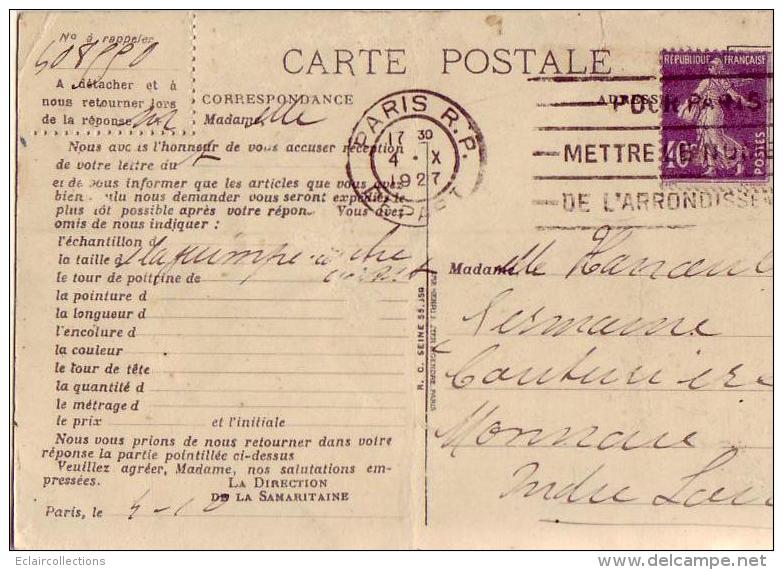 No à rappeler
CARTE POSTALE
A détacher et à
nous retourner lors
de la réponse
CORRESPONDANCE
Madame elle
Nous avons l'honneur de vous accuser réception
de votre lettre du
et de vous informer que les articles que vous avez
bien voulu nous demander vous seront expédiés le
plus tôt possible après votre réponse Vous avez
omis de nous indiquer :
l'échantillon d
la taille d
le tour de poitrine de
la pointure d
la longueur d
l'encolure d
la couleur
le tour de tête
la quantité d
le métrage d
le prix et l'initiale
Nous vous prions de nous retourner dans votre
réponse la partie pointillée ci-dessus
Veuillez agréer, Madame, nos salutations em-
pressées. LA DIRECTION
DE LA SAMARITAINE
Paris, le 4-10
PARIS R.P.
17 30
4 · X
1927
DÉPART
R. C. SEINE 55.358
RÉPUBLIQUE FRANÇAISE
40c
POSTES
ADRESSE
POUR PARIS
METTRE LE NUM
DE L'ARRONDISSE
Madame elle
Germaine
Couturière
Monnaie
Indre Loi
Eclaircollections
©delcampe.net